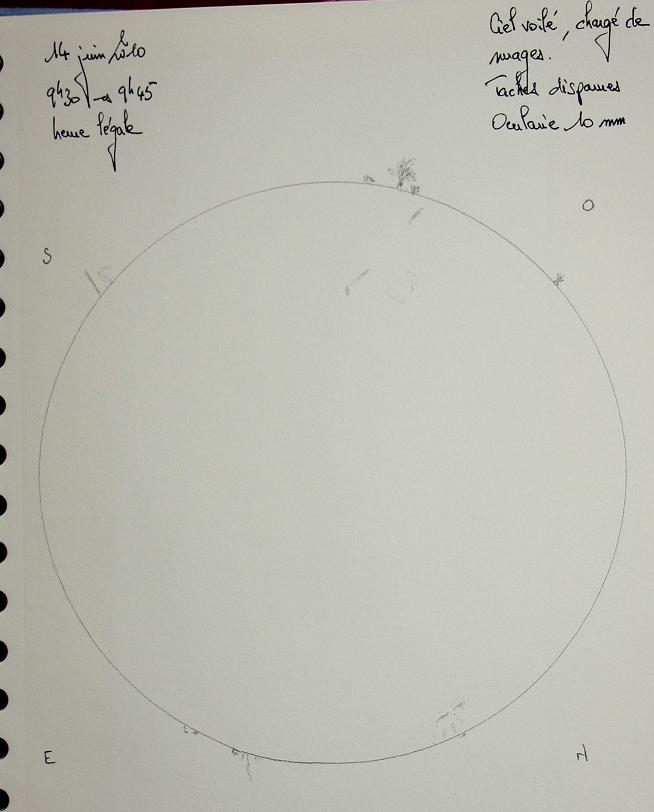 14 juin 2010
9h30 → 9h45
heure légale
Ciel voilé, chargé de
nuages.
Taches disparues
Oculaire 10 mm
S
O
E
N